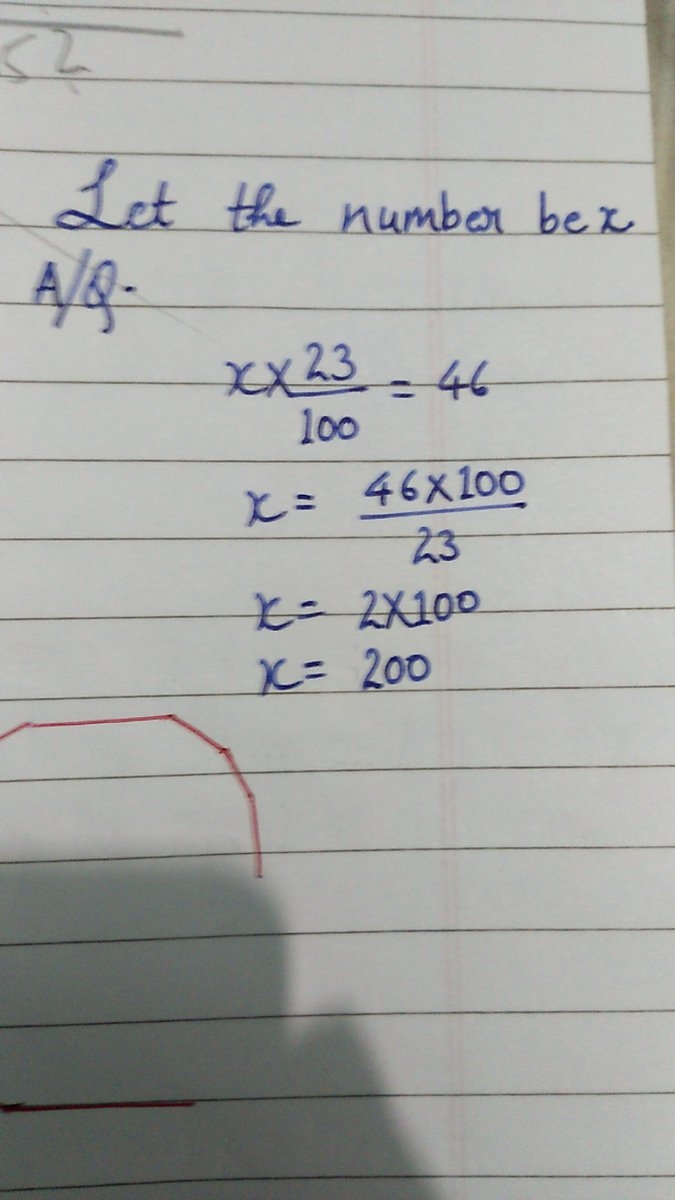 52
Let the number be x
A/Q.
x × 23/100 = 46
x = 46×100/23
x = 2×100
x = 200